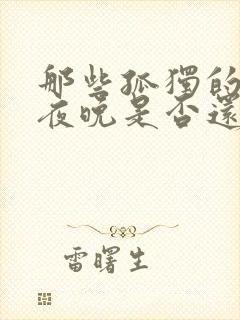 那些孤獨的
夜晚是否還
雷曙生